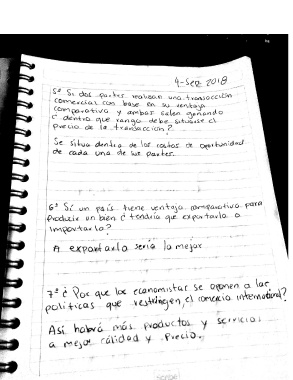 4-Sep 2018
5º Si dos partes realizan una transacción
comercial con base en su ventaja
comparativa y ambas salen ganando
¿ dentro que rango debe situarse el
precio de la transacción?
Se situa dentro de los costos de oportunidad
de cada una de las partes.
6º Si un país tiene ventaja comparativa para
Producir un bien ¿ tendría que exportarlo o
importarlo?
A exportarlo sería lo mejor
7º ¿ Por que los economistas se oponen a las
políticas que restringen el comercio internacional?
Así habrá más productos y servicios
a mejor calidad y Precio.